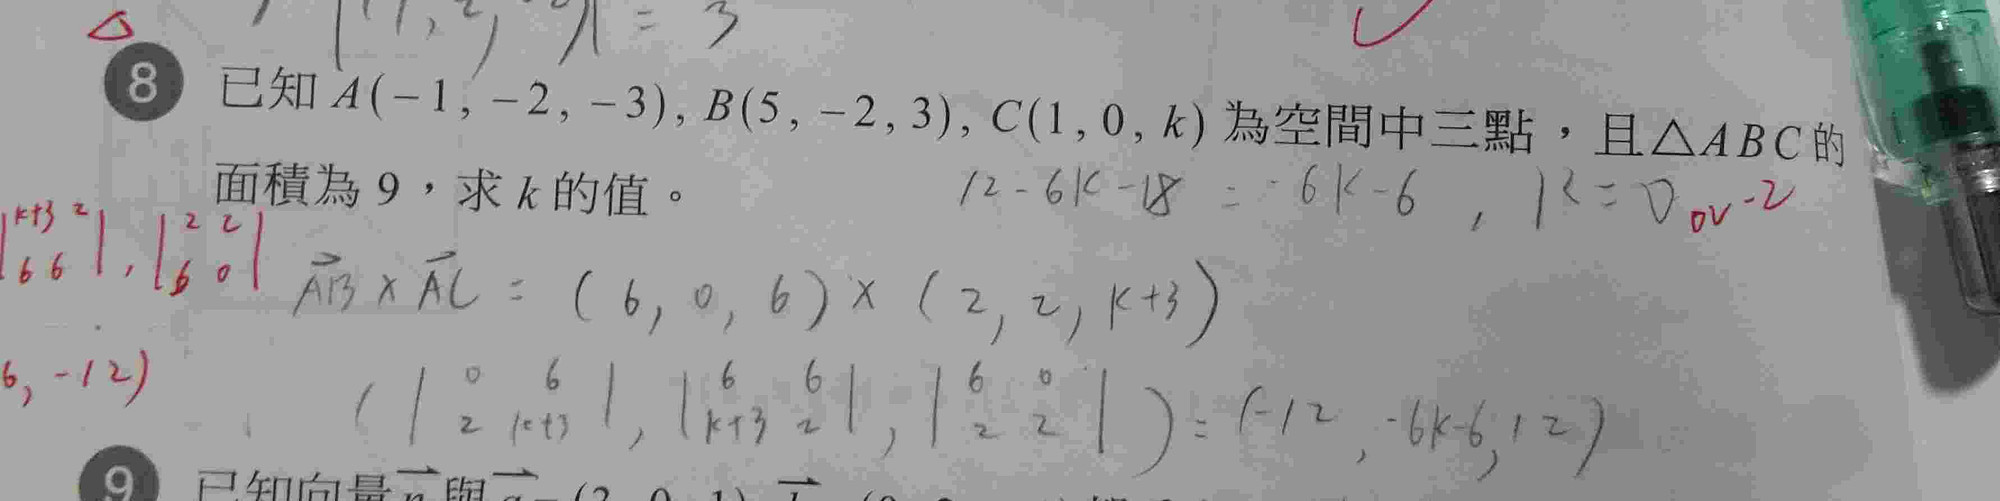 (1, 2, )| = 3
8 已知 A(−1, −2, −3), B(5, −2, 3), C(1, 0, k) 為空間中三點，且△ABC的
面積為 9，求 k 的值。
12-6k-18 = -6k-6 , k=0 or -2
|k+3 2
6 6| , |2 2
6 0|
AB × AC = (6, 0, 6) × (2, 2, k+3)
6, -12)
(|0 6
2 k+3| , |6 6
k+3 2| , |6 0
2 2|) = (-12, -6k-6, 12)
9 已知向量